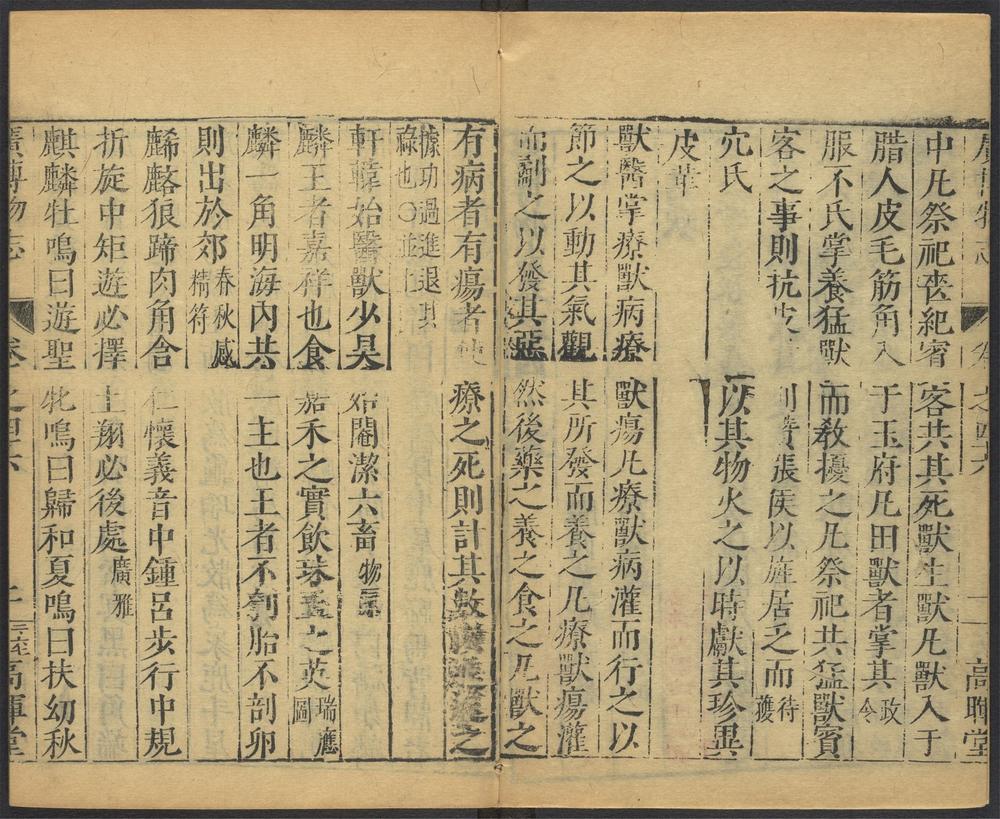 中凡祭祀喪紀賓客共其死獸生獸凡獸入于
腊人皮毛筋角入于玉府凡田獸者掌其政令
服不氏掌養猛獸而教擾之凡祭祀共猛獸賓
客之事則抗皮 張侯以旌居乏而待獲
穴氏 以其物火之以時獻其珍異
皮革
獸醫掌療獸病療獸瘍凡療獸病灌而行之以
節之以動其氣觀其所發而養之凡療獸瘍灌
而劀之以發其惡然後藥之養之食之凡獸之
有病者有瘍者使療之死則計其數
據功過進退其祿也○並
軒轅始醫獸少昊始闢潔六畜物原
麟王者嘉祥也食嘉禾之實飲珠玉之英瑞應圖
麟一角明海內共一主也王者不刳胎不剖卵
則出於郊春秋感精符
麟麕身狼蹄肉角含仁懷義音中鍾呂步行中規
折旋中矩遊必擇土翔必後處廣雅
麒麟牡鳴曰遊聖牝鳴曰歸和夏鳴曰扶幼秋
廣博物志 卷之四六 高暉堂